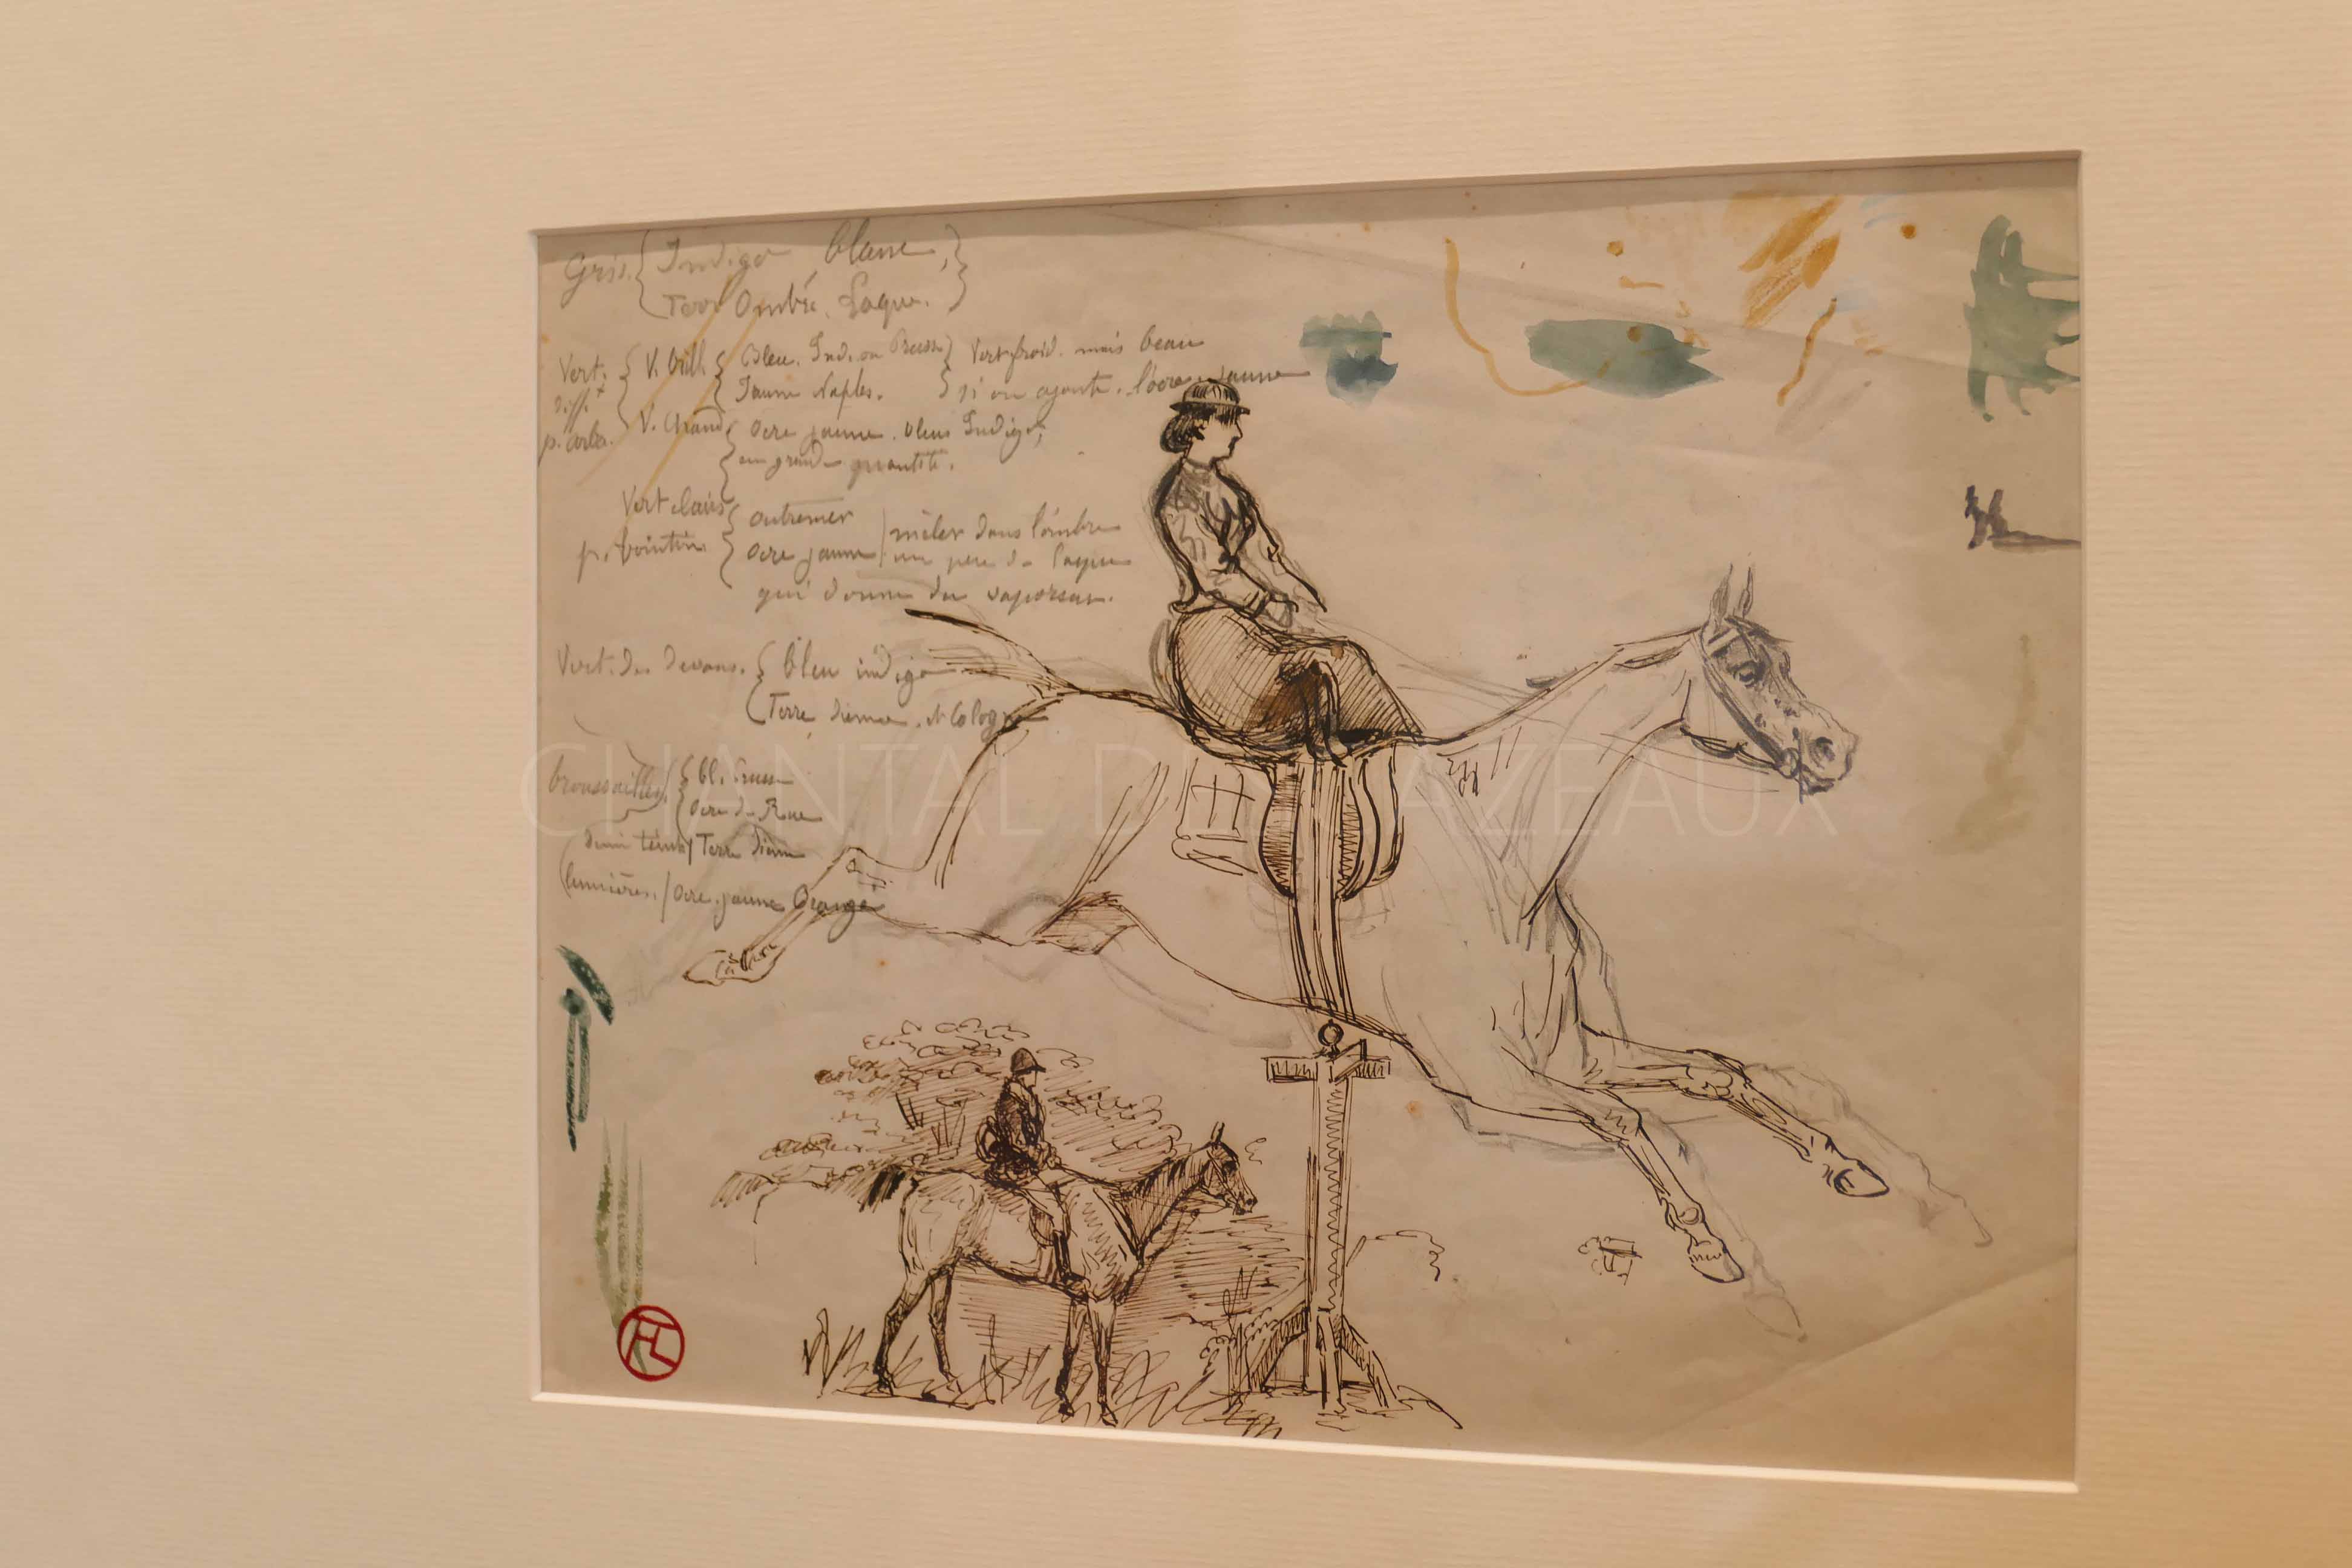 Gris. { Indigo, blanc, }
Terr Ombre. Laque.
Vert. { V. brill. { Bleu. Ind. ou Pruss } Vert froid. mais beau
diff.t Jaune Naples. } si on ajoute. l'ocre jaune
p. arbr. V. Chaud { Ocre jaune. bleus Indigo,
en grande quantité.
Vert clairs { outremer
p. { ocre jaune / mêler dans l'ombre
un peu de laque
qui donne du vaporeux.
Vert. des devans. { bleu indigo
Terre Sienne. et Cologne
broussailles { bl. Prusse
Ocre de Rue
demi teinte / Terre Sienne
lumières. / Ocre. jaune Orangé
CHANTAL DE AZEAUX